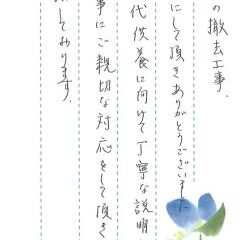 の撤去工事、
にして頂きありがとうございました
代供養に向けて丁寧な説明
事にご親切な対応をして頂き
しております。